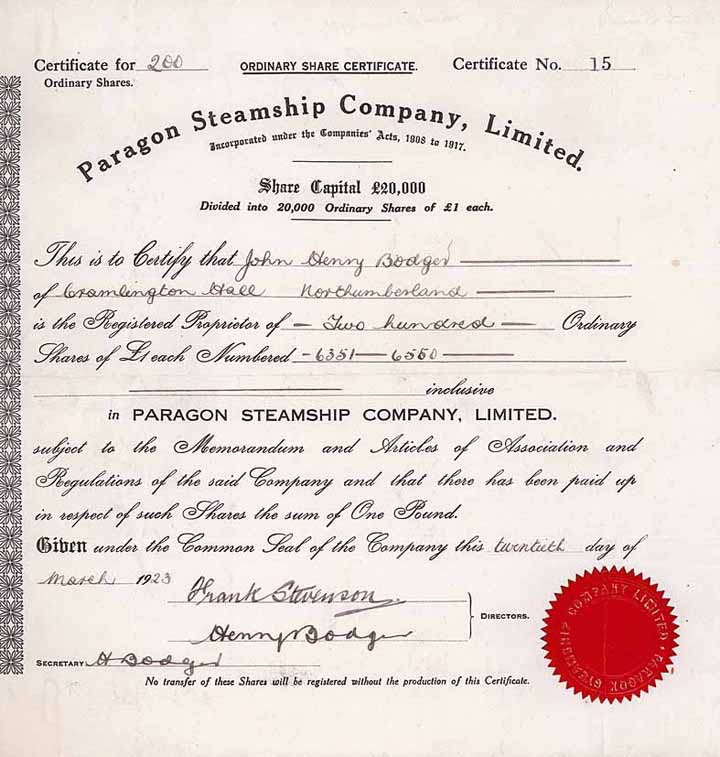 Certificate for 200 ORDINARY SHARE CERTIFICATE. Certificate No. 15
Ordinary Shares.
Paragon Steamship Company, Limited.
Incorporated under the Companies' Acts, 1908 to 1917.
Share Capital £20,000
Divided into 20,000 Ordinary Shares of £1 each.
This is to Certify that John Henry Bodger
of Cramlington Hall Northumberland
is the Registered Proprietor of - Two hundred - Ordinary
Shares of £1 each Numbered - 6351 - 6550
inclusive
in PARAGON STEAMSHIP COMPANY, LIMITED.
subject to the Memorandum and Articles of Association and
Regulations of the said Company and that there has been paid up
in respect of such Shares the sum of One Pound.
Given under the Common Seal of the Company this twentieth day of
March 1923
Frank Stevenson
DIRECTORS.
Henry Bodger
SECRETARY H Bodger
No transfer of these Shares will be registered without the production of this Certificate.
PARAGON STEAMSHIP COMPANY LIMITED